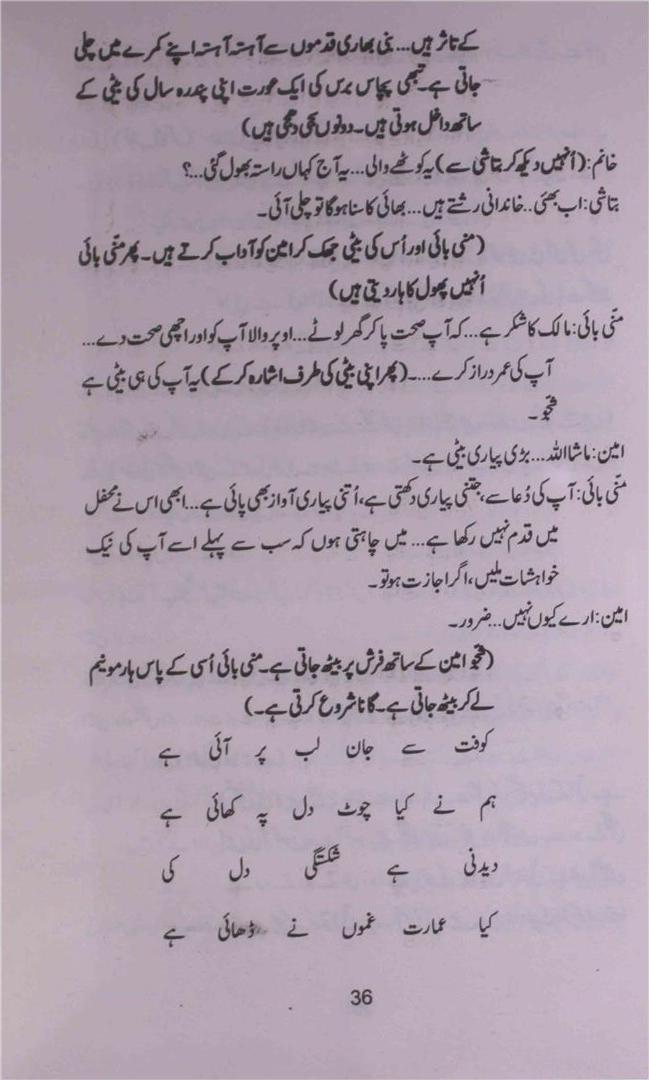 کے تاثر ہیں... بنی بھاری قدموں سے آہستہ آہستہ اپنے کمرے میں چلی
جاتی ہے۔ تبھی پچاس برس کی ایک عورت اپنی پندرہ سال کی بیٹی کے
ساتھ داخل ہوتی ہیں۔ دونوں سجی دھجی ہیں)
خانم: (اُنہیں دیکھ کر بتاشی سے) یہ کوٹھے والی... یہ آج کہاں راستہ بھول گئی...؟
بتاشی: اب بھئی.. خاندانی رشتے ہیں... بھائی کا سنا ہوگا تو چلی آئی۔
(منی بائی اور اُس کی بیٹی جھک کر امین کو آداب کرتے ہیں۔ پھر منّی بائی
اُنہیں پھول کا ہار دیتی ہیں)
منّی بائی: مالک کا شکر ہے... کہ آپ صحت پا کر گھر لوٹے... اوپر والا آپ کو اور اچھی صحت دے...
آپ کی عمر دراز کرے...۔ (پھر اپنی بیٹی کی طرف اشارہ کر کے) یہ آپ کی ہی بیٹی ہے
شبّو۔
امین: ماشااللہ... بڑی پیاری بیٹی ہے۔
منّی بائی: آپ کی دُعا سے، جتنی پیاری دکھتی ہے، اُتنی پیاری آواز بھی پائی ہے... ابھی اس نے محفل
میں قدم نہیں رکھا ہے... میں چاہتی ہوں کہ سب سے پہلے اسے آپ کی نیک
خواہشات ملیں، اگر اجازت ہو تو۔
امین: ارے کیوں نہیں... ضرور۔
(شبّو امین کے ساتھ فرش پر بیٹھ جاتی ہے۔ منی بائی اُسی کے پاس ہارمونیم
لے کر بیٹھ جاتی ہے۔ گانا شروع کرتی ہے۔)
کوفت سے جان لب پر آئی ہے
ہم نے کیا چوٹ دل پہ کھائی ہے
دیدنی ہے شکستگی دل کی
کیا عمارت غموں نے ڈھائی ہے
36